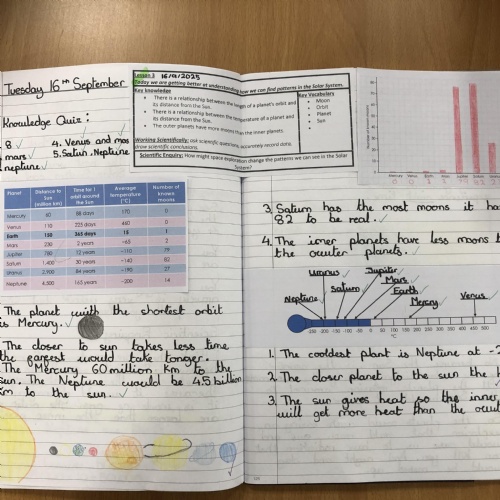 Tuesday 16th September
Knowledge Quiz:
8
mars
neptune
4. Venus and mas
5. Saturn. Neptune
Lesson 3 16/9/2025
Today we are getting better at understanding how we can find patterns in the Solar System.
Key Knowledge
There is a relationship between the length of a planet's orbit and
its distance from the Sun.
There is a relationship between the temperature of a planet and
its distance from the Sun.
The outer planets have more moons than the inner planets.
Key Vocabulary
Moon
Orbit
Planet
Sun
Working Scientifically: ask scientific questions, accurately record data,
draw scientific conclusions.
Scientific Enquiry: How might space exploration change the patterns we can see in the Solar
System?
Planet Distance to Sun (million km) Time for 1 orbit around the Sun Average temperature (°C) Number of known moons
Mercury 60 88 days 170 0
Venus 110 225 days 460 0
Earth 150 365 days 15 1
Mars 230 2 years -65 2
Jupiter 780 12 years -110 79
Saturn 1,400 30 years -140 82
Uranus 2,900 84 years -195 27
Neptune 4,500 165 years -200 14
The planet with the shortest orbit
is Mercury.
The closer to sun takes less time
the gargest would take tonger.
The Mercury 60 million Km to the
sun. The Neptune would be 4.5 billion
km to the sun.
Mercury Venus Earth Mars Jupiter Saturn Uranus Neptune
3. Saturn has the most moons it has
82 to be real.
4. The inner planets have less moons t
the outer planets.
Uranus
Jupiter
Mars
Saturn
Earth
Neptune
Mercry
Venus
-250 -200 -150 -100 -50 0 50 100 150 200 250 300 350 400 450 500
°C
1. The cooldest plant is Neptune at -2
2. The closer planet to the sun the h
3. The sun gives heat so the inner
will get more heat than the ocut